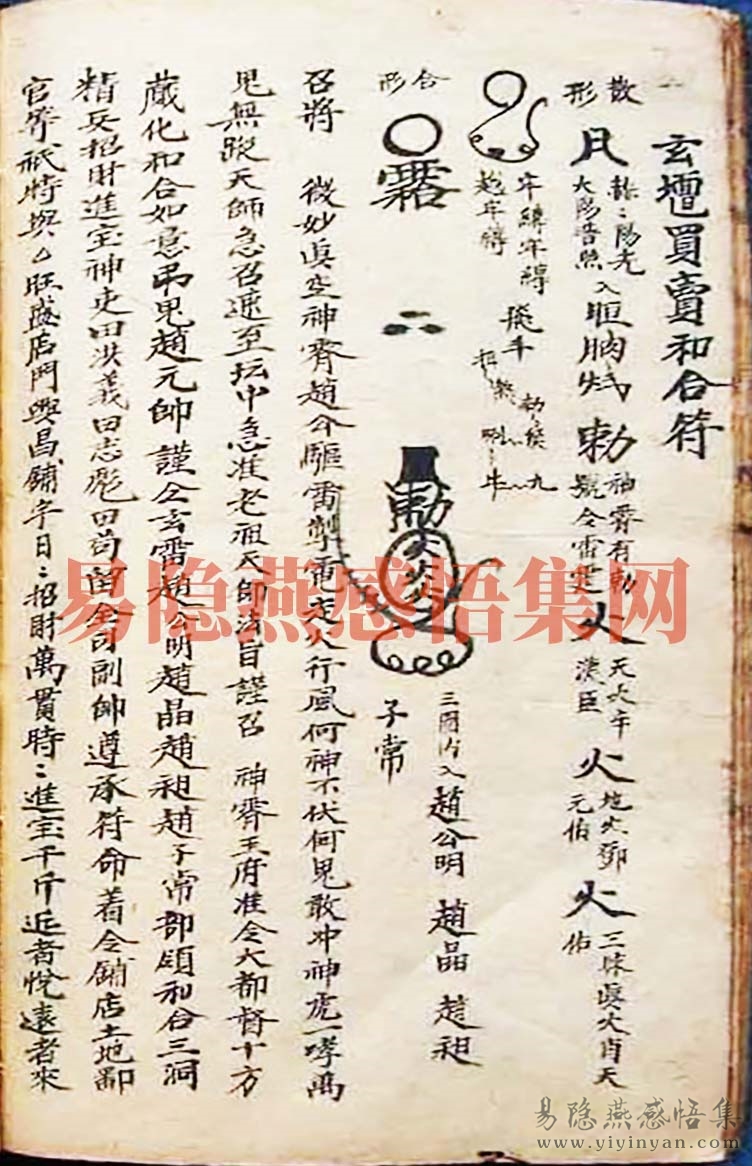 玄壇買賣和合符
散形
赫〻陽光
太陽普照
入
勅
神霄有勅
號令雷霆
火
天火辛
漢臣
火
地火鄧
元伯
火
三昧真火肖天
佑
牢縛牢縛
趙牢縛
三圈内入
趙公明 趙晶 趙昶
合形
子常
召將 微妙真空神霄趙公驅雷掣電走火行風何神不伏何鬼敢冲神虎一哮萬
鬼無蹤天師急召速至坛中急准老祖天師法旨謹召 神霄玉府准令大都督十方
藏化和合如意 鬼趙元帥謹公玄雷趙公明趙晶趙昶趙子常部領和合三洞
精兵招財進宝神吏田洪義田志彪田 副帥遵承符命着令鋪店土地鄙
官齊祇時與厶旺盛店門興昌鋪宇日〻招財萬貫時〻進宝千斤近者悅遠者來
易隐燕感悟集网
易隐燕感悟集
www.yiyinyan.com